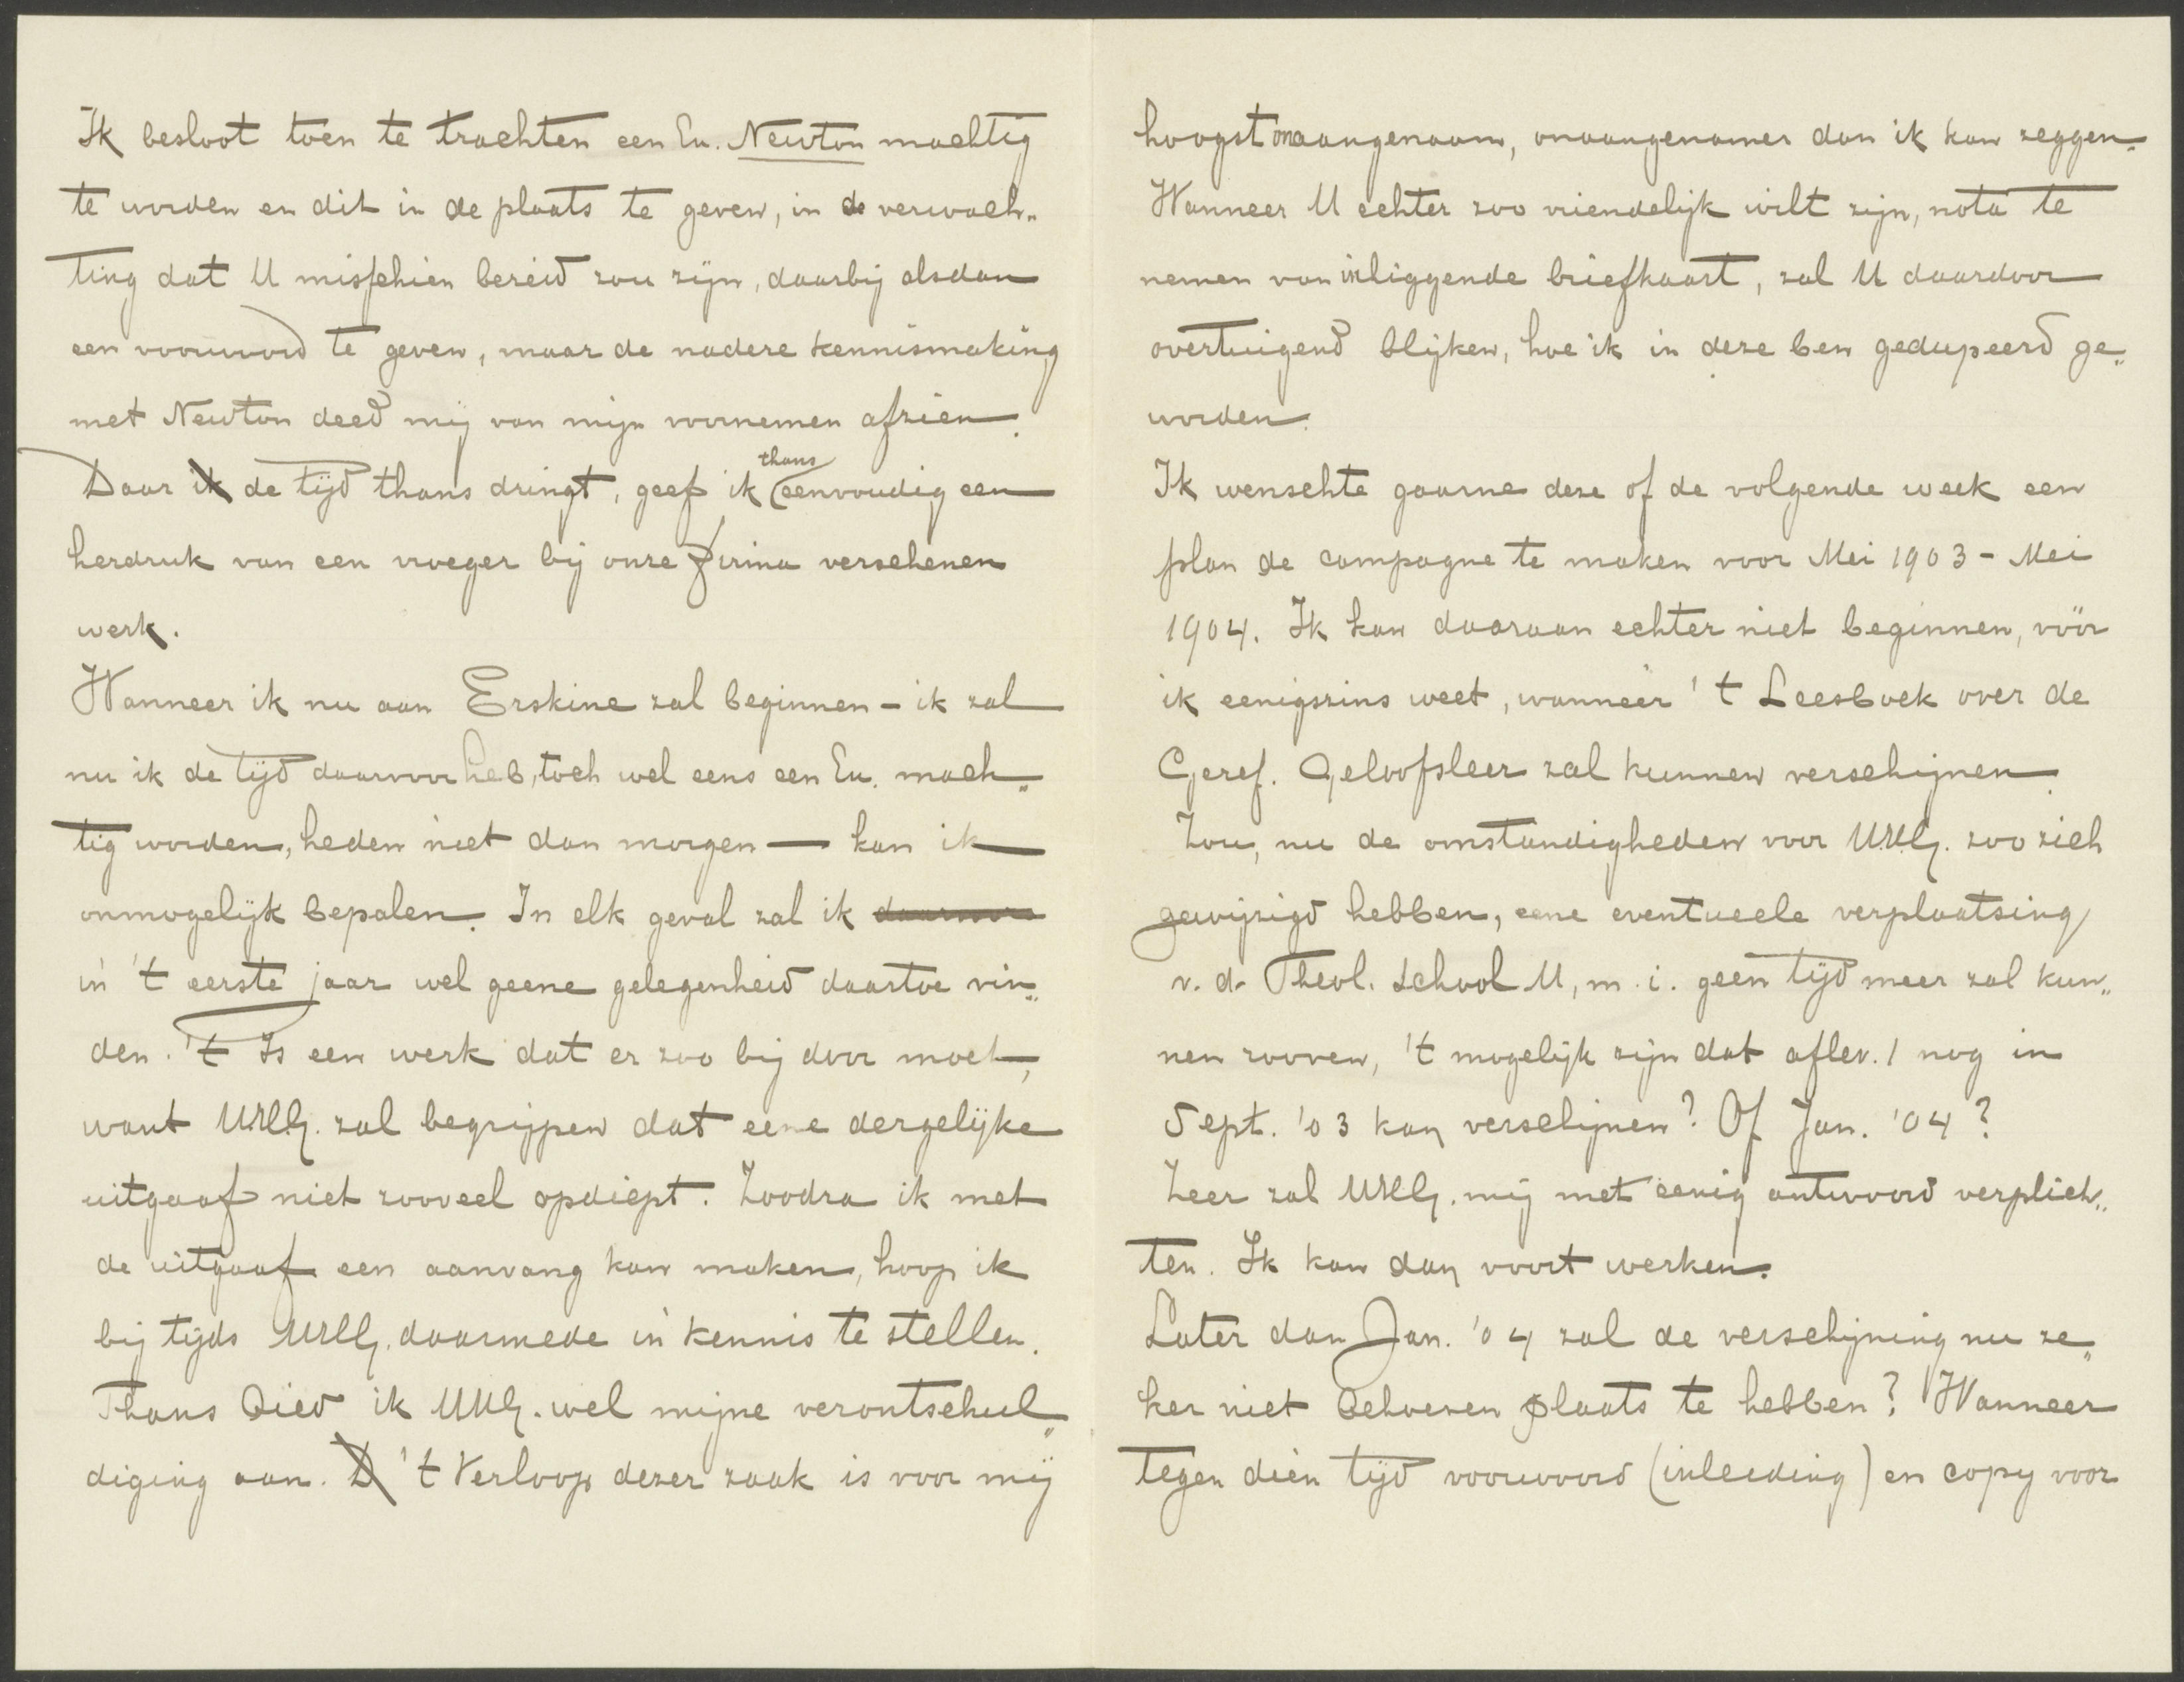 Ik besloot toen te trachten een Ex. Newton machtig
te worden en dit in de plaats te geven, in de verwach„
ting dat U misschien bereid zou zijn, daarbij alsdan
een voorwoord te geven, maar de nadere kennismaking
met Newton deed mij van mijn voornemen afzien.
Daar ik de tijd thans dringt, geef ik thans eenvoudig een
herdruk van een vroeger bij onze Firma verschenen
werk.
Wanneer ik nu aan Erskine zal beginnen - ik zal
nu ik de tijd daarvoor heb, toch wel eens een Ex. mach„
tig worden, heden niet dan morgen — kan ik
onmogelijk bepalen. In elk geval zal ik daarvoor
in 't eerste jaar wel geene gelegenheid daartoe vin„
den. 't Is een werk dat er zoo bij door moet,
want UWEg. zal begrijpen dat eene dergelijke
uitgaaf niet zooveel opdiept. Zoodra ik met
de uitgaaf een aanvang kan maken, hoop ik
bij tijds UWEg. daarmede in kennis te stellen.
Thans bied ik UWEg. wel mijne verontschul„
diging aan. D 't Verloop dezer zaak is voor mij
hoogst onaangenaam, onaangenamer dan ik kan zeggen.
Wanneer U echter zoo vriendelijk wilt zijn, nota te
nemen van inliggende briefkaart, zal U daardoor
overtuigend blijken, hoe ik in deze ben gedupeerd ge„
worden.
Ik wenschte gaarne deze of de volgende week een
plan de campagne te maken voor Mei 1903 - Mei
1904. Ik kan daaraan echter niet beginnen, vóór
ik eenigszins weet, wanneer 't Leesboek over de
Geref. Geloofsleer zal kunnen verschijnen.
Zou, nu de omstandigheden voor UWEg. zoo zich
gewijzigd hebben, eene eventueele verplaatsing
v. d. Theol. School U, m. i. geen tijd meer zal kun„
nen rooven, 't mogelijk zijn dat aflev. 1 nog in
Sept. '03 kan verschijnen? Of Jan. '04?
Zeer zal UWEg. mij met eenig antwoord verplich„
ten. Ik kan dan voort werken.
Later dan Jan. '04 zal de verschijning nu ze„
ker niet behoeven plaats te hebben? Wanneer
tegen dien tijd voorwoord (inleiding) en copy voor